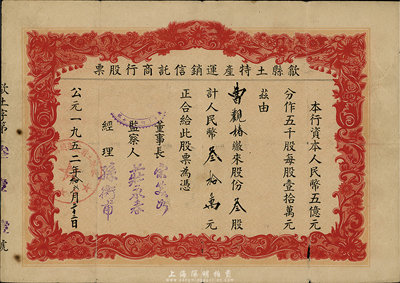 歙縣土特產運銷信託商行股票
本行資本人民幣五億元
分作五千股每股壹拾萬元
茲由
曹觀椿繳來股份叁股
計人民幣叁拾萬元
正合給此股票為憑
董事長
監察人
經理
公元一九五二年 月 日
歙土字第 號
上海陽明拍賣